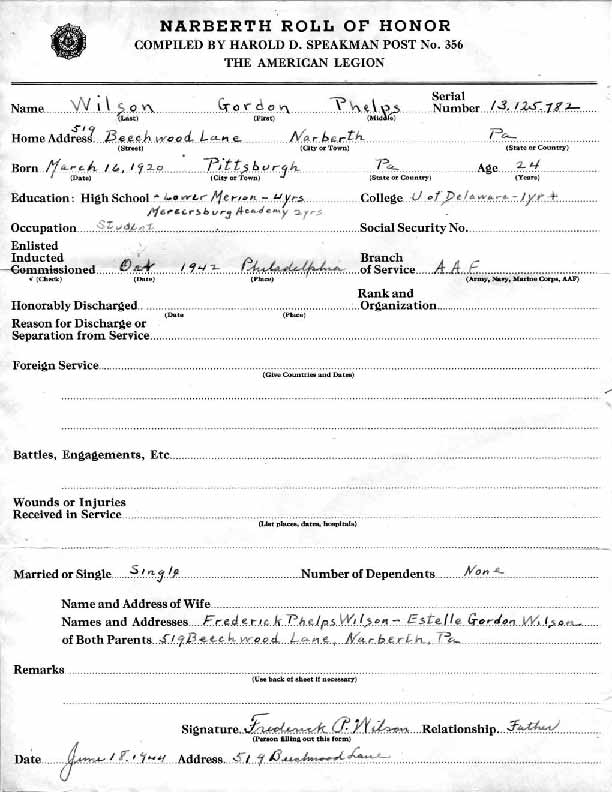 NARBERTH ROLL OF HONOR
COMPILED BY HAROLD D. SPEAKMAN POST No. 356
THE AMERICAN LEGION
Name Wilson Gordon Phelps Serial Number 13,125,782
(Last) (First) (Middle)
Home Address 519 Beechwood Lane Narberth Pa
(Street) (City or Town) (State or Country)
Born March 16, 1920 Pittsburgh Pa Age 24
(Date) (City or Town) (State or Country) (Years)
Education: High School - Lower Merion - 4 yrs College U of Delaware - 1 yr +
Mercersburg Academy 2 yrs
Occupation Student Social Security No.
Enlisted
Inducted Branch
Commissioned Oct 1942 Philadelphia of Service A A F
√ (Check) (Date) (Place) (Army, Navy, Marine Corps, AAF)
Honorably Discharged Rank and Organization
(Date (Place)
Reason for Discharge or
Separation from Service
Foreign Service
(Give Countries and Dates)
Battles, Engagements, Etc
Wounds or Injuries
Received in Service
(List places, dates, hospitals)
Married or Single Single Number of Dependents None
Name and Address of Wife
Names and Addresses Frederick Phelps Wilson - Estelle Gordon Wilson
of Both Parents 519 Beechwood Lane, Narberth, Pa
Remarks
(Use back of sheet if necessary)
Signature Frederick P. Wilson Relationship Father
(Person filling out this form)
Date June 18, 1944 Address 519 Beechwood Lane